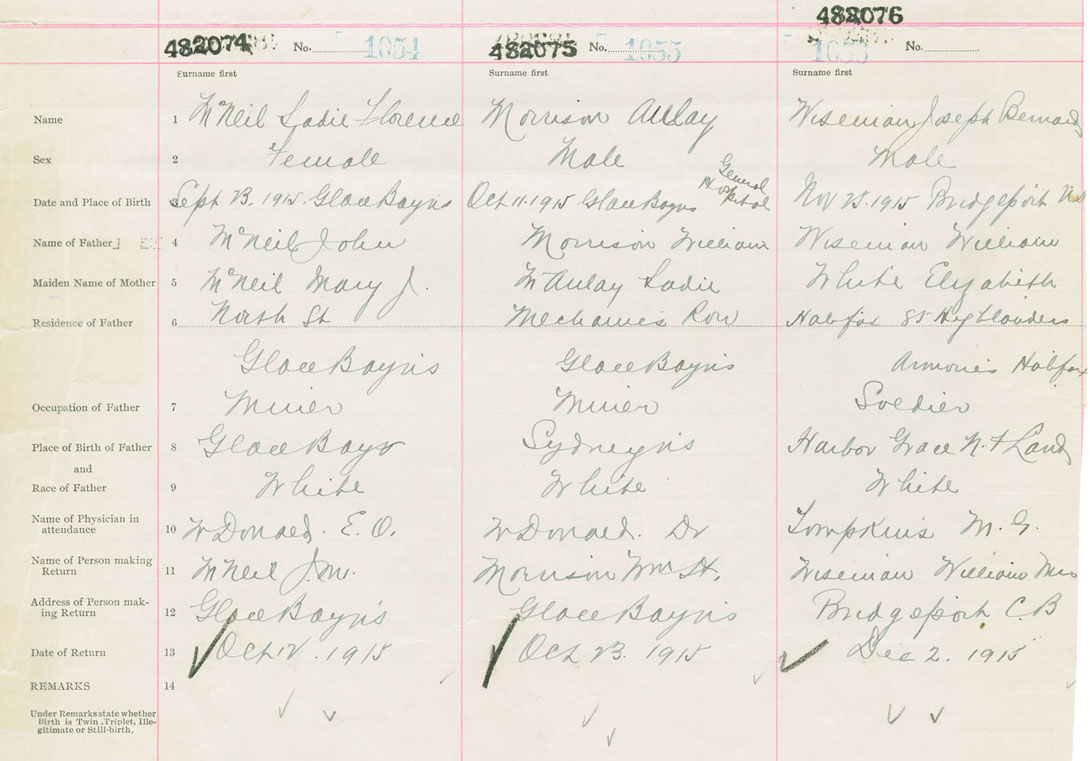 482076
482074 No. 1654 482075 No. 1655 No.
Surname first Surname first Surname first
Name 1 McNeil Sadie Florence Morrison Aulay Wiseman Joseph Bernard
Sex 2 Female Male Male
General Hospital
Date and Place of Birth 3 Sept 23. 1915. Glace Bay NS Oct 11. 1915 Glace Bay NS Nov 25. 1915 Bridgeport NS
Name of Father 4 McNeil John Morrison William Wiseman William
Maiden Name of Mother 5 McNeil Mary J. McAulay Sadie White Elizabeth
Residence of Father 6 North St Mechanics Row Halifax 85 Highlanders
Glace Bay NS Glace Bay NS Armories Halifax
Occupation of Father 7 Miner Miner Soldier
Place of Birth of Father 8 Glace Bay Sydney NS Harbor Grace N.F Land
and
Race of Father 9 White White White
Name of Physician in
attendance 10 McDonald. E. O. McDonald. Dr Tompkins M. G.
Name of Person making
Return 11 McNeil J.M. Morrison Wm H. Wiseman William Mrs
Address of Person mak-
ing Return 12 Glace Bay NS Glace Bay NS Bridgeport C.B
Date of Return 13 Oct 12. 1915 Oct 23. 1915 Dec 2. 1915
REMARKS 14
Under Remarks state whether
Birth is Twin, Triplet, Ille-
gitimate or Still-birth.